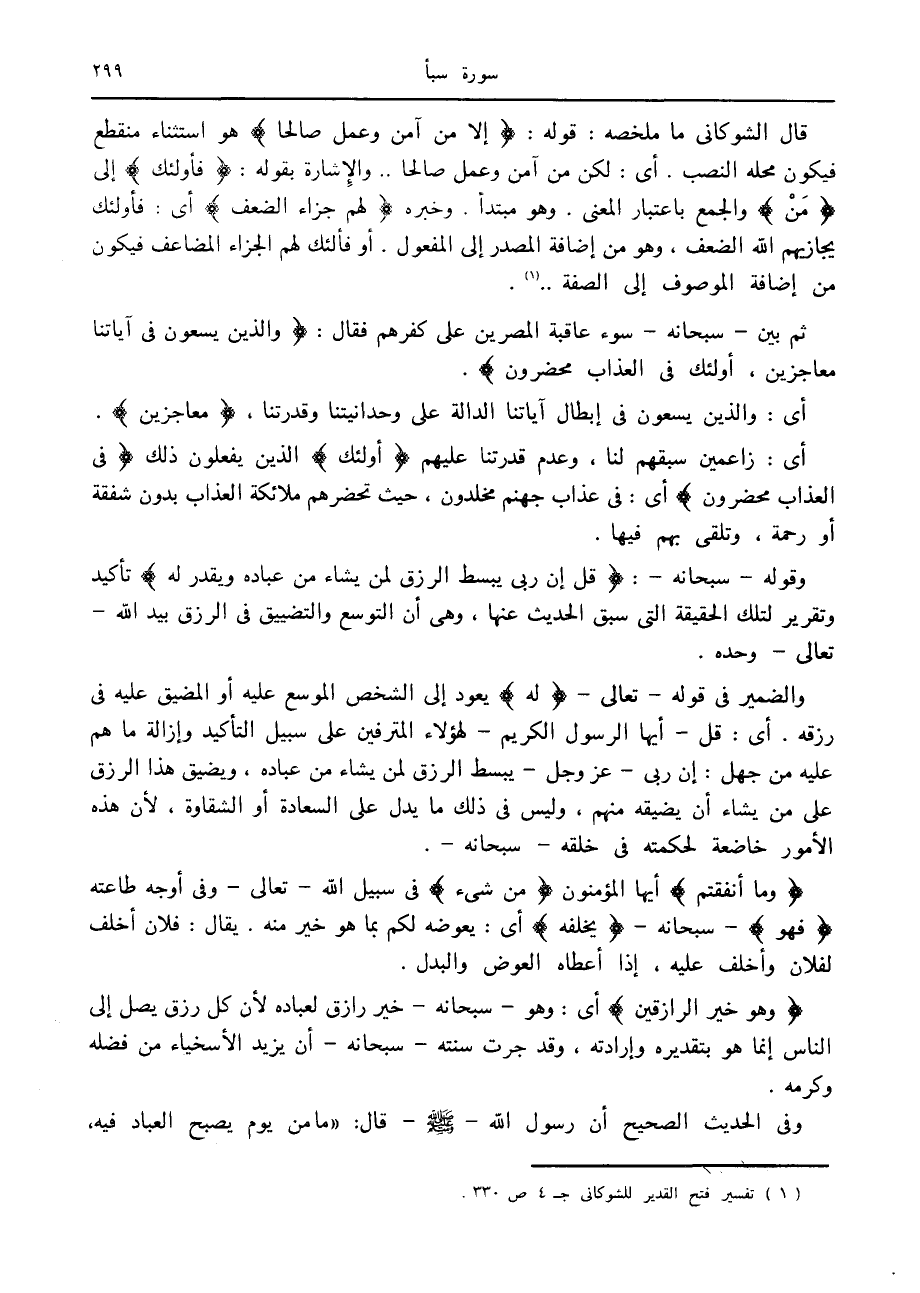 سورة سبأ ٢٩٩
قال الشوكانى ما ملخصه : قوله : ﴿ إلا من آمن وعمل صالحا ﴾ هو استثناء منقطع
فيكون محله النصب . أى : لكن من آمن وعمل صالحا .. والإشارة بقوله : ﴿ فأولئك ﴾ إلى
﴿ مَنْ ﴾ والجمع باعتبار المعنى . وهو مبتدأ . وخبره ﴿ لهم جزاء الضعف ﴾ أى : فأولئك
يجازيهم الله الضعف ، وهو من إضافة المصدر إلى المفعول . أو فألئك لهم الجزاء المضاعف فيكون
من إضافة الموصوف إلى الصفة ..(١) .
ثم بين – سبحانه – سوء عاقبة المصرين على كفرهم فقال : ﴿ والذين يسعون فى آياتنا
معاجزين ، أولئك فى العذاب محضرون ﴾ .
أى : والذين يسعون فى إبطال آياتنا الدالة على وحدانيتنا وقدرتنا ، ﴿ معاجزين ﴾ .
أى : زاعمين سبقهم لنا ، وعدم قدرتنا عليهم ﴿ أولئك ﴾ الذين يفعلون ذلك ﴿ فى
العذاب محضرون ﴾ أى : فى عذاب جهنم مخلدون ، حيث تحضرهم ملائكة العذاب بدون شفقة
أو رحمة ، وتلقى بهم فيها .
وقوله – سبحانه – : ﴿ قل إن ربى يبسط الرزق لمن يشاء من عباده ويقدر له ﴾ تأكيد
وتقرير لتلك الحقيقة التى سبق الحديث عنها ، وهى أن التوسع والتضييق فى الرزق بيد الله –
تعالى – وحده .
والضمير فى قوله – تعالى – ﴿ له ﴾ يعود إلى الشخص الموسع عليه أو المضيق عليه فى
رزقه . أى : قل – أيها الرسول الكريم – لهؤلاء المترفين على سبيل التأكيد وإزالة ما هم
عليه من جهل : إن ربى – عز وجل – يبسط الرزق لمن يشاء من عباده ، ويضيق هذا الرزق
على من يشاء أن يضيقه منهم ، وليس فى ذلك ما يدل على السعادة أو الشقاوة ، لأن هذه
الأمور خاضعة لحكمته فى خلقه – سبحانه – .
﴿ وما أنفقتم ﴾ أيها المؤمنون ﴿ من شىء ﴾ فى سبيل الله – تعالى – وفى أوجه طاعته
﴿ فهو ﴾ – سبحانه – ﴿ يخلفه ﴾ أى : يعوضه لكم بما هو خير منه . يقال : فلان أخلف
لفلان وأخلف عليه ، إذا أعطاه العوض والبدل .
﴿ وهو خير الرازقين ﴾ أى : وهو – سبحانه – خير رازق لعباده لأن كل رزق يصل إلى
الناس إنما هو بتقديره وإرادته ، وقد جرت سنته – سبحانه – أن يزيد الأسخياء من فضله
وكرمه .
وفى الحديث الصحيح أن رسول الله – ﷺ – قال: «مامن يوم يصبح العباد فيه،
( ١ ) تفسير فتح القدير للشوكانى جـ ٤ ص ٣٣٠ .